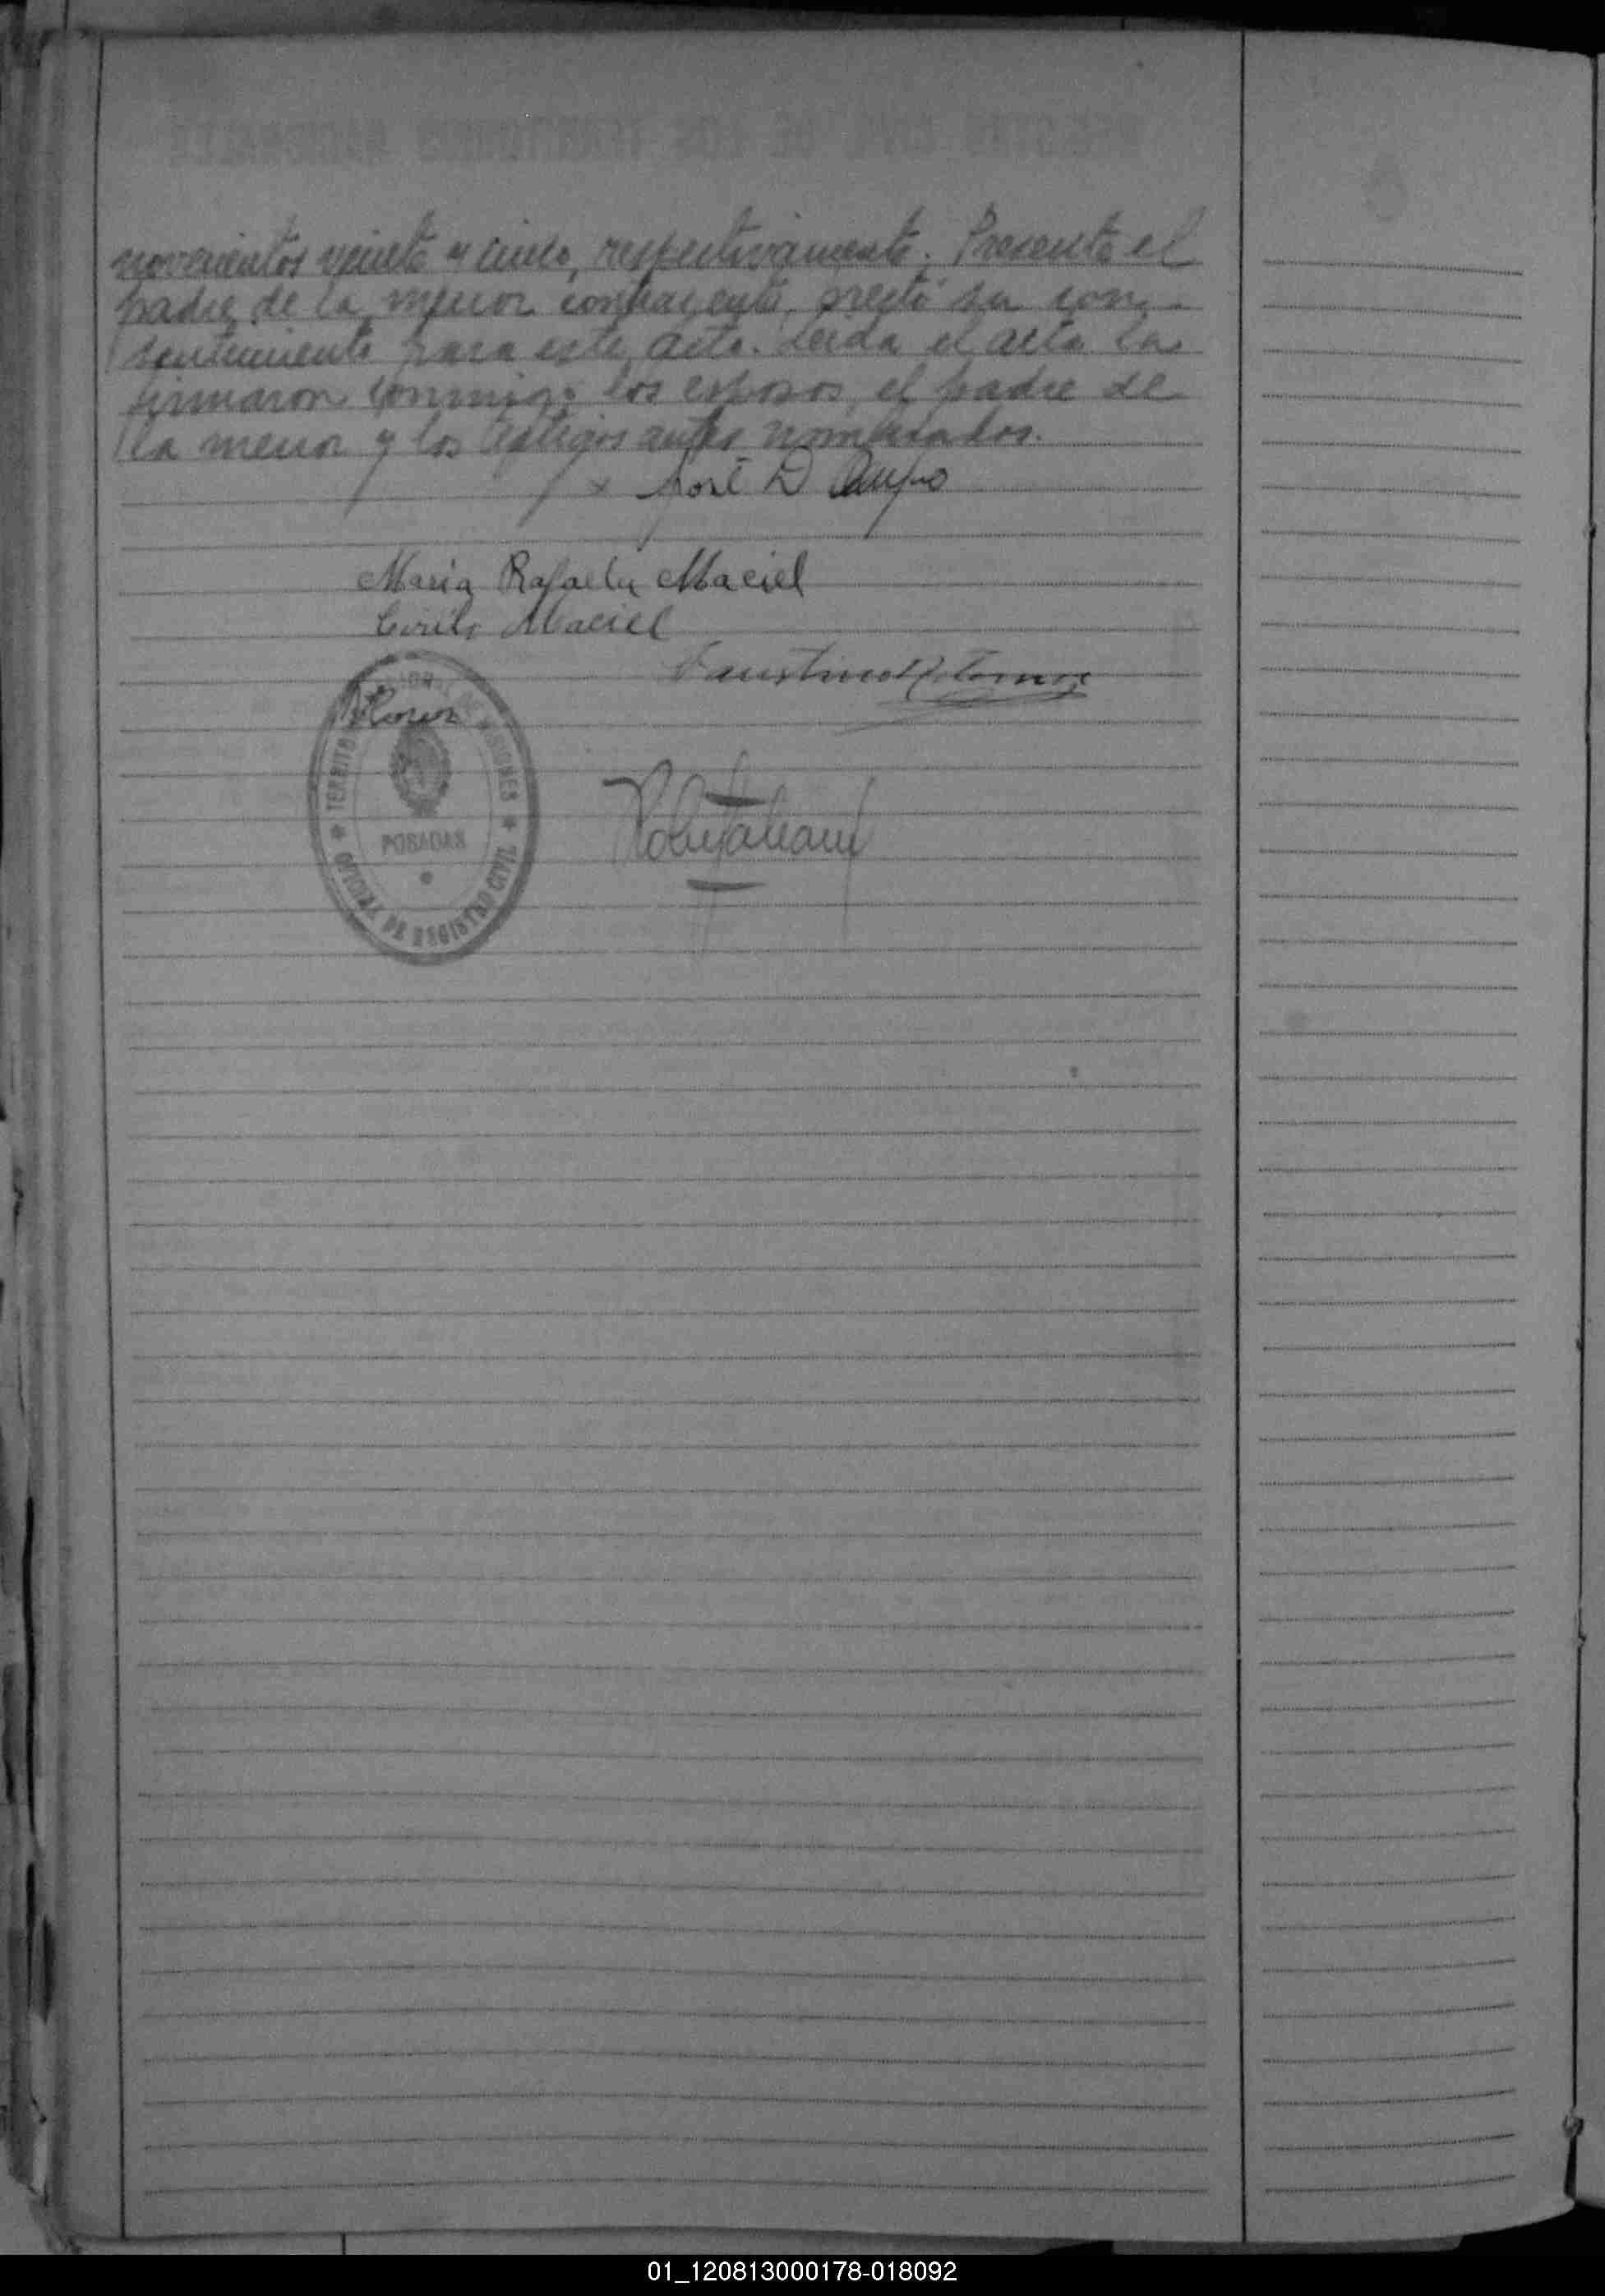 novecientos veinte y cinco, respectivamente. Presente el
padre de la menor contrayente, prestó su con-
sentimiento para este acto. Leida el acta la
firmaron conmigo los esposos, el padre de
la menor y los testigos antes nombrados.
x José D
Maria Rafaela Maciel
Cirilo Maciel
Faustino
TERRITORIO NACIONAL DE MISIONES
POSADAS
OFICINA DE REGISTRO CIVIL
01_120813000178-018092